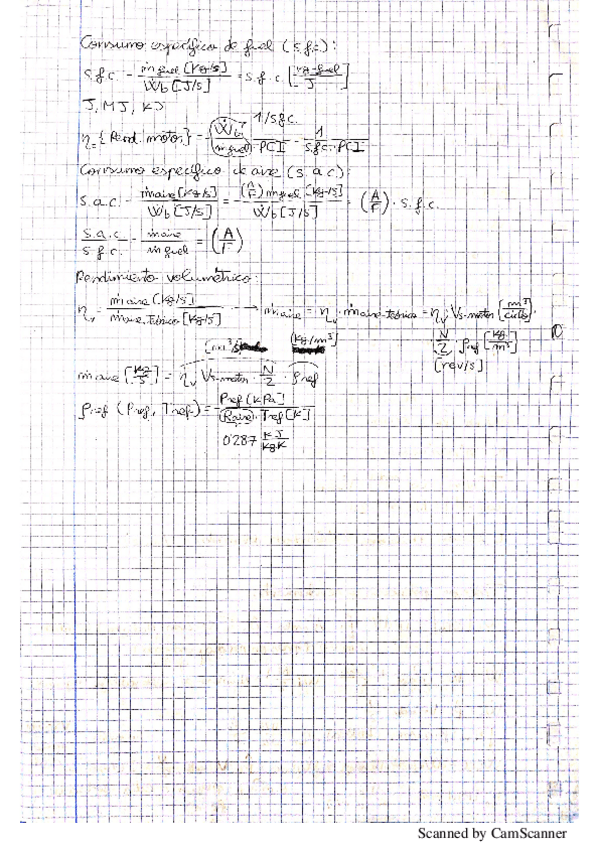 Consumo específico de fuel (s.f.c.):
s.f.c. = ṁ fuel [kg/s] / Ẇb [J/s] = s.f.c. [kg-fuel / J]
J, MJ, KJ
η = {Rend. motor} = Ẇb / ṁ fuel · 1/s.f.c. / PCI = 1 / s.f.c. · PCI
Consumo específico de aire (s.a.c.):
s.a.c. = ṁ aire [kg/s] / Ẇb [J/s] = (A/F) ṁ fuel [kg/s] / Ẇb [J/s] = (A/F) · s.f.c.
s.a.c. / s.f.c. = ṁ aire / ṁ fuel = (A/F)
Rendimiento volumétrico:
ηv = ṁ aire [kg/s] / ṁ aire·teórico [kg/s] → ṁ aire = ηv · ṁ aire·teórico = ηv · Vs·motor [m³/ciclo] ·
· N/2 · ρref [kg/m³]
[rev/s]
[m³/s] [kg/m³]
ṁ aire [kg/s] = ηv · Vs·motor · N/2 · ρref
ρref (Pref, Tref) = Pref [kPa] / Raire · Tref [K]
0'287 KJ / kg K
Scanned by CamScanner